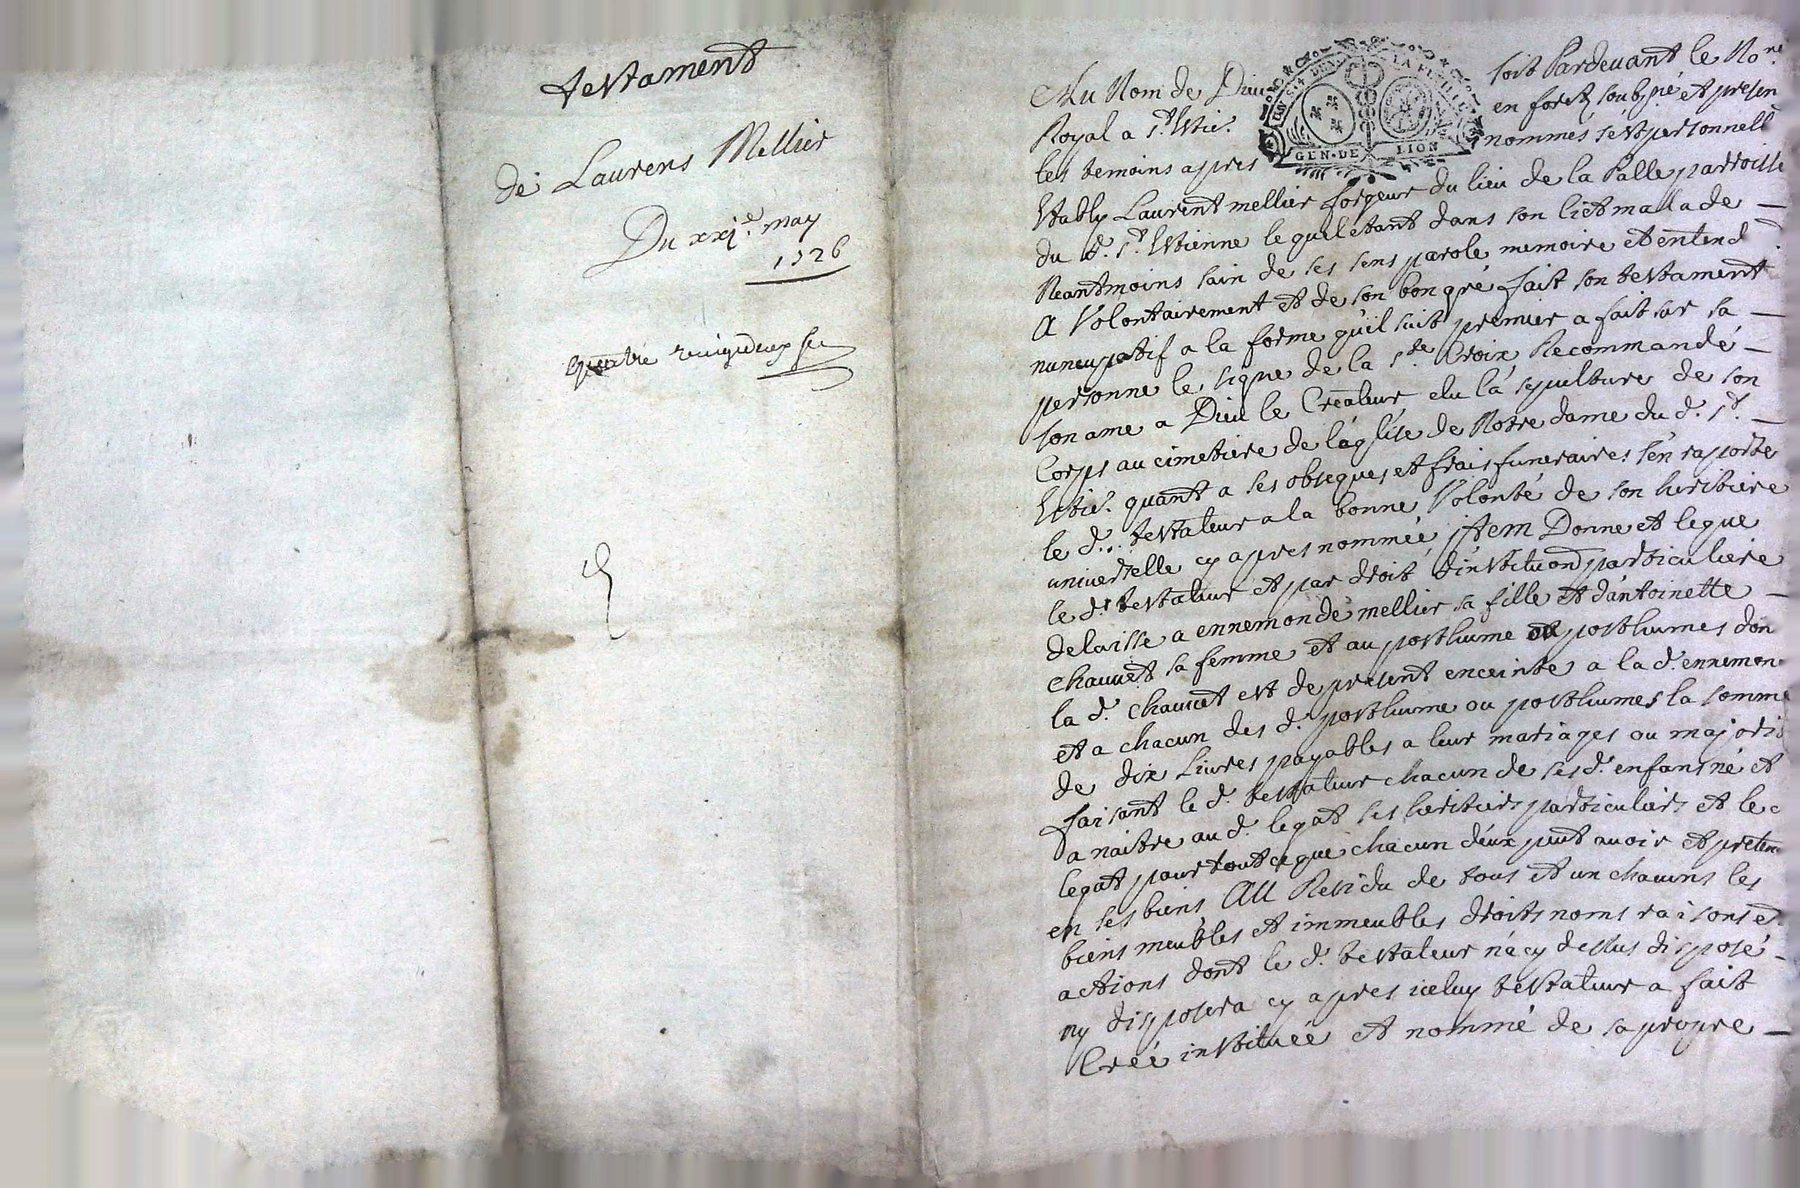 testament
de Laurens Mellier
Du xxj.e may
1726
quatre
Au Nom de Dieu soit Pardevant le No.re
Royal a St. Estie. en forest soubz.né et presen
les temoins apres nommés s'est personnell.
Estably Laurent mellier forgeur du lieu de la Palle parroisse
du d. St. Estienne lequel étant dans son lict malade
Neantmoins sain de ses sens parole memoire et entend.
A Volontairement et de son bon gré fait son testament
nuncupatif a la forme qu'il suit premier a fait sur sa
personne le signe de la Ste. Croix Recommandé
son ame a Dieu le Créateur elu la sepulture de son
Corps au cimetiere de l'église de Notre dame du d. St.
Estie. quant a ses obseques et frais funeraires s'en raporte
le d. testateur a la bonne Volonté de son heritiere
universelle cy apres nommée Item Donne et legue
le d. testateur et par droit d'institu.on particuliere
delaisse a ennemonde mellier sa fille et d'antoinette
chauuet sa femme et au posthume ou posthumes don
la d. chauuet est de present enceinte a la d. ennemon
et a chacun des d. posthume ou posthumes la somme
de dix Livres payables a leur mariages ou majorit
faisant le d. testateur chacun de ses d. enfans né et
a naitre au d. legat ses heritiers particuliers et le d
legat pour tout ce que chacun d'eux peut avoir et preten
en ses biens AU Residu de tous et un chacuns les
biens meubles et immeubles droits noms raisons et
actions dont le d. testateur n'a cy dessus disposé
ny disposera cy apres iceluy testateur a fait
Creé instituée et nommé de sa propre
GEN. DE LION